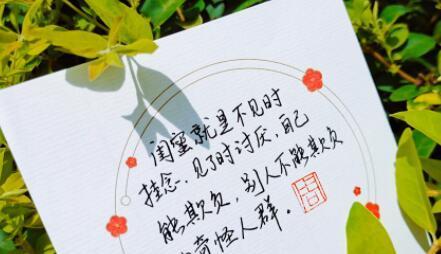 闺蜜就是不见时
挂念，见了时讨厌，自己
能欺负，别人不能欺负
奇怪人群。